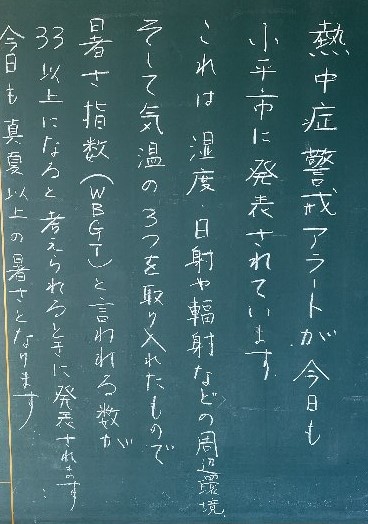 熱中症警戒アラートが今日も
小平市に発表されています
これは湿度・日射や輻射などの周辺環境
そして気温の3つを取り入れたもので
暑さ指数(WBGT)と言われる数が
33以上になると考えられるときに発表されます
今日も真夏以上の暑さとなります